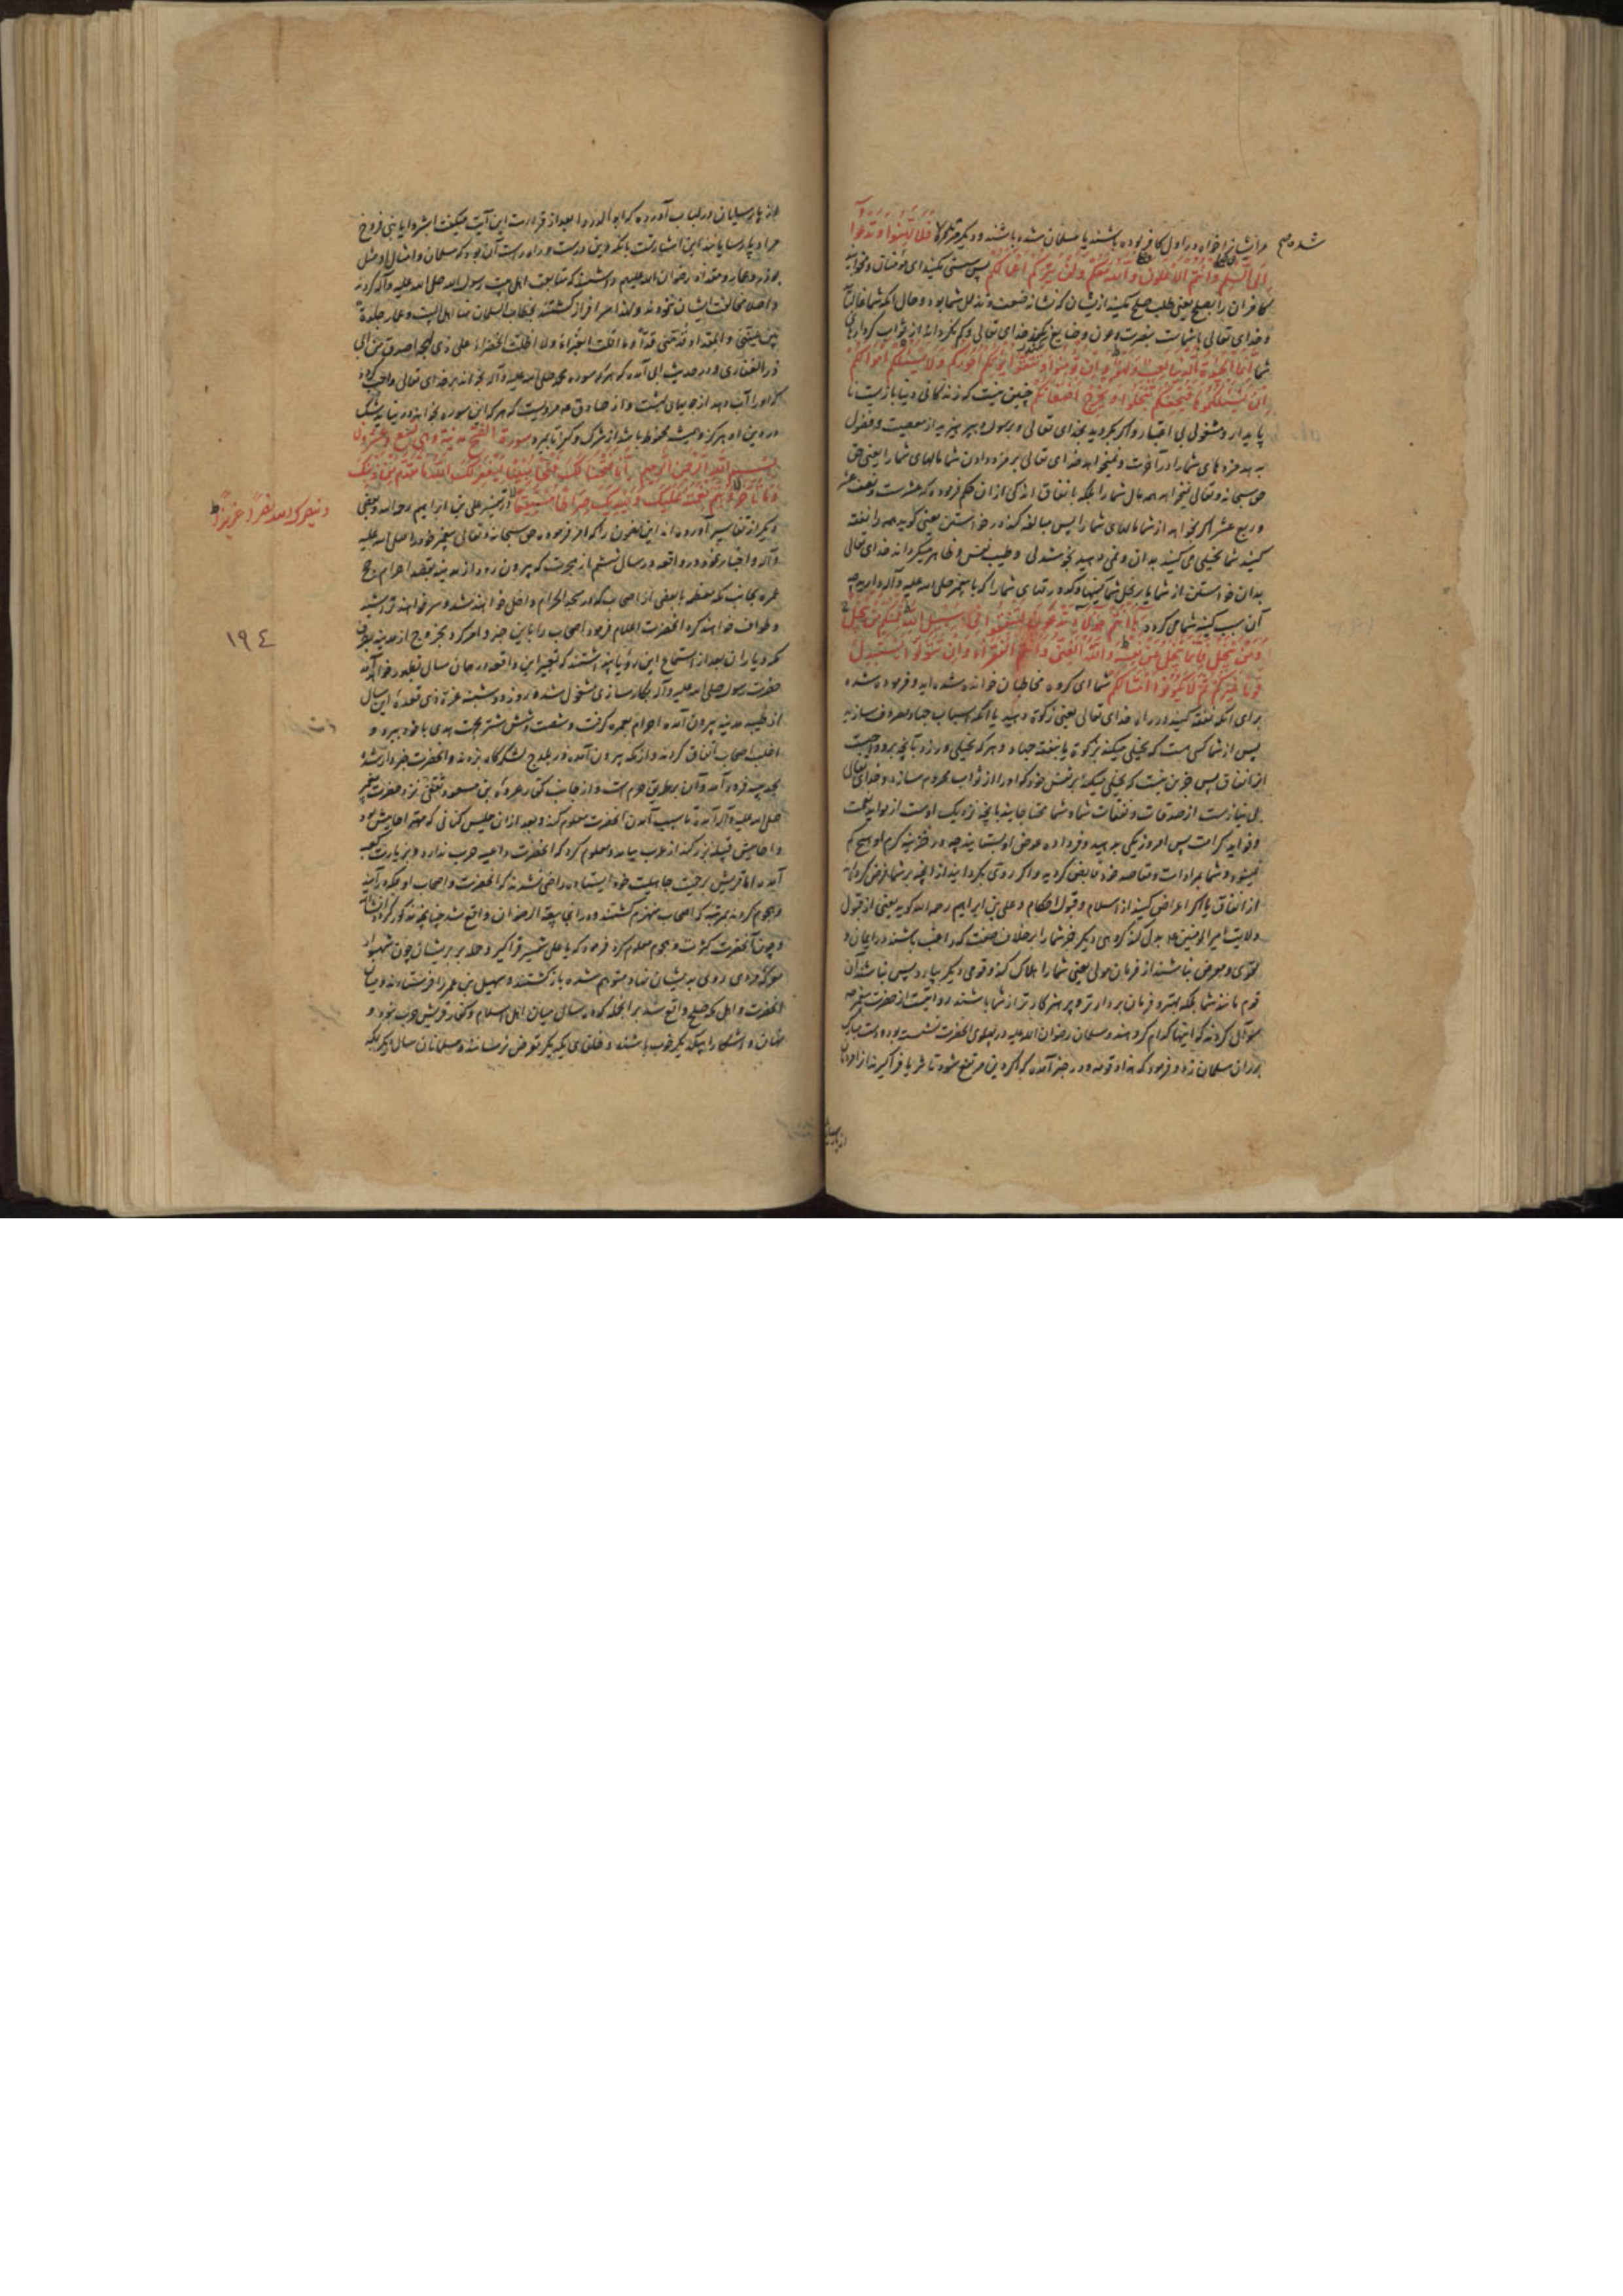 مر ایشانرا خواه در اول کافر بوده باشند یا مسلمان شده باشند و دیگر مرتد فَلا تَهِنُوا وَتَدْعُوا
شده صح
إِلَى السَّلْمِ وَأَنْتُمُ الْأَعْلَوْنَ وَاللَّهُ مَعَكُمْ وَلَنْ يَتِرَكُمْ أَعْمَالَكُمْ پس سستی مکنید ای مؤمنان و مخوانید
کافران را بصلح یعنی طلب صلح مکنید از ایشان که نشانه ضعف و تذلل شما بود و حال آنکه شما غالبانید
و خدای تعالی با شماست بنصرت و عون و ضایع نکند خدای تعالی و کم نگرداند از ثواب کردارهای
شما إِنَّمَا الْحَيٰوةُ الدُّنْيَا لَعِبٌ وَلَهْوٌ وَإِنْ تُؤْمِنُوا وَتَتَّقُوا يُؤْتِكُمْ أُجُورَكُمْ وَلَا يَسْئَلْكُمْ أَمْوَالَكُمْ
إِنْ يَسْئَلْكُمُوهَا فَيُحْفِكُمْ تَبْخَلُوا وَيُخْرِجْ أَضْغَانَكُمْ چنین نیست که زندگانی دنیا بازیست نا
پایدار و مشغولی بی اعتبار و اگر بگروید بخدای تعالی و برسول و بپرهیزید از معصیت و فضول
بدهد مزدهای شما را در آخرت و نمیخواهد خدای تعالی بر مزد دادن شما مالهای شما را یعنی حق
سبحانه و تعالی نمیخواهد همه مال شما را بلکه بانفاق اندکی از ان حکم فرموده که عشرست و نصف عشر
و ربع عشر اگر بخواهد از شما مالهای شما را پس مبالغه کند در خواستن یعنی گوید همه را نفقه
کنید شما بخیلی می کنید بدان و نمی دهید بخوشدلی و طیب نفس و ظاهر میگرداند خدای تعالی
بدان خواستن از شما یا بر بخل شما کینها و کدورتهای شما را که با پیغمبر صلی الله علیه و آله دارید چه
آن سبب کینه شما می گردد هَا أَنْتُمْ هٰؤُلَاءِ تُدْعَوْنَ لِتُنْفِقُوا فِي سَبِيلِ اللَّهِ فَمِنْكُمْ مَنْ يَبْخَلُ
وَمَنْ يَبْخَلْ فَإِنَّمَا يَبْخَلُ عَنْ نَفْسِهِ وَاللَّهُ الْغَنِيُّ وَأَنْتُمُ الْفُقَرَاءُ وَإِنْ تَتَوَلَّوْا يَسْتَبْدِلْ
قَوْمًا غَيْرَكُمْ ثُمَّ لَا يَكُونُوا أَمْثَالَكُمْ شما ای گروه مخاطبان خوانده شده اید و فرموده شده
برای آنکه نفقه کنید در راه خدای تعالی یعنی زکوة دهید یا آنکه اسباب جهاد مصروف سازید
پس از شما کسی است که بخیلی میکند بزکوة یا بنفقه جهاد و هر که بخیلی ورزد بآنچه برو واجبست
از انفاق پس جز این نیست که بخیلی میکند بر نفس خود که او را از ثواب محروم سازد و خدای تعالی
بی نیازست از صدقات و نفقات شما و شما محتاجانید بآنچه نزدیک اوست از مواید نعمت
و فواید کرامت پس امروز یکی بدهید و فردا ده عوض او بستانید چه در خزینه کرم او هیچ کم
نمیشود و شما بمرادات و مقاصد خود فایض گردید و اگر روی بگردانید از آنچه بر شما فرض کرده اند
از انفاق یا اگر اعراض کنید از اسلام و قبول احکام و علی بن ابراهیم رحمه الله گوید یعنی از قبول
ولایت امیر المومنین ع بدل کند گروهی دیگر جز شما را بر خلاف صفت که راغب باشند در ایمان و
تقوی و معرض نباشند از فرمان مولی یعنی شما را هلاک کند و قومی دیگر بیارد پس نباشند آن
قوم مانند شما بلکه بهتر و فرمان بردارتر و پرهیزکارتر از شما باشند روایتست از حضرت پیغمبر ص
سؤال کردند که اینها کدام گروهند و سلمان رضوان الله علیه در پهلوی آنحضرت نشسته بود دست مبارک
بر ران سلمان زد و فرمود که هذا و قومه و در خبر آمده که اگر دین مرتفع شود تا ثریا فراگیرند از او مردان
از پارسیان
از پارسیان در لباب آورده که ابو الدردا بعد از قراءت این آیت میگفت ابشروا یا بنی فروخ
مراد پارسیانند این بشارتست بانکه دین درست و راه راست آن بود که سلمان و امثال او مثل
بوذر و عمار و مقداد رضوان الله علیهم داشتند که متابعت اهل بیت رسول الله صلی الله علیه و آله کردند
و اصلا مخالفت ایشان ننمودند و لهذا سرافراز گشتند بخطاب السلمان منا اهل البیت و عمار جلدة
بین عینی و المقداد قد منی قداً و ما اقلت الغبراء ولا اظلت الخضراء علی ذی لهجة اصدق من ابی
ذر الغفاری و در حدیث ابی آمده که هر که سوره محمد صلی الله علیه و آله بخواند بر خدای تعالی واجب گردد
که او را آب دهد از جویهای بهشت و از صادق ع مرویست که هر که این سوره بخواند در نیاید شک
در دین او هرگز و همیشه محفوظ باشد از شرک و کفر تا بمیرد سورة الفتح مدنیة وهی تسع وعشرون
بسم الله الرحمن الرحيم إِنَّا فَتَحْنَا لَكَ فَتْحًا مُبِينًا لِيَغْفِرَ لَكَ اللَّهُ مَا تَقَدَّمَ مِنْ ذَنْبِكَ
وَمَا تَأَخَّرَ وَيُتِمَّ نِعْمَتَهُ عَلَيْكَ وَيَهْدِيَكَ صِرَاطًا مُسْتَقِيمًا در تفسیر علی بن ابراهیم رحمه الله و بعضی
وینصرک الله نصراً عزیزاً
دیگر از تفاسیر آورده اند این مضمون را که امر فرمود حق سبحانه و تعالی پیغمبر خود را صلی الله علیه
و آله و اخبار نمود در واقعه در سال ششم از هجرت که بیرون رود از مدینه بقصد احرام حج
عمره بجانب مکه معظمه با بعضی از اصحاب که در مسجد الحرام داخل خواهند شد و سر خواهند تراشید
و طواف خواهند کرد آنحضرت اعلام فرمود اصحاب را باین خبر و امر کرد بخروج از مدینه بطرف
١٩٤
مکه و یاران بعد از استماع این رؤیا پنداشتند که تعبیر این واقعه در همان سال بظهور خواهد آمد
حضرت رسول صلی الله علیه و آله بکارسازی مشغول شده روز دوشنبه غره ذی قعده این سال
از طیبه مدینه بیرون آمده احرام بعمره گرفت و شصت و شش شتر بجهت هدی با خود ببرد و
اغلب اصحاب اتفاق کردند و از مکه بیرون آمده در بلدح لشکرگاه بزدند و آنحضرت خبردار شده
بحدیبیه فرود آمد و آن بر طریق حرم است و از جانب کفار عروه بن مسعود ثقفی نزد حضرت پیغمبر
صلی الله علیه و آله آمد تا سبب آمدن آنحضرت معلوم کند و بعد از ان حلیس کنانی که مهتر احابیش بود
و احابیش قبیله بزرگند از عرب بیامد و معلوم کرد که آنحضرت داعیه حرب ندارد و بزیارت کعبه
آمده اما قریش بر حمیت جاهلیت خود ایستاده راضی نشدند که آنحضرت و اصحاب او بمکه درآیند
و هجوم کردند بمرتبه که اصحاب منهزم گشتند و درانجا بیعة الرضوان واقع شد چنانچه مذکور گردد انشاءالله
و چون آنحضرت کثرت و هجوم معلوم کرد فرمود که یا علی شمشیر فراگیر و حمله بر بریشان چون شهسوار
معرکه مردی روی بدیشان نهاد متوهم شده بازگشتند و سهیل بن عمر را فرستادند و میان
آنحضرت و اهل مکه صلح واقع شد برانجمله که ده سال میان اهل اسلام و کفار قریش حرب نبود و
نهان و آشکارا با یکدیگر خوب باشند و خلقای یکدیگر تعرض نرسانند و مسلمانان سال دیگر بمکه